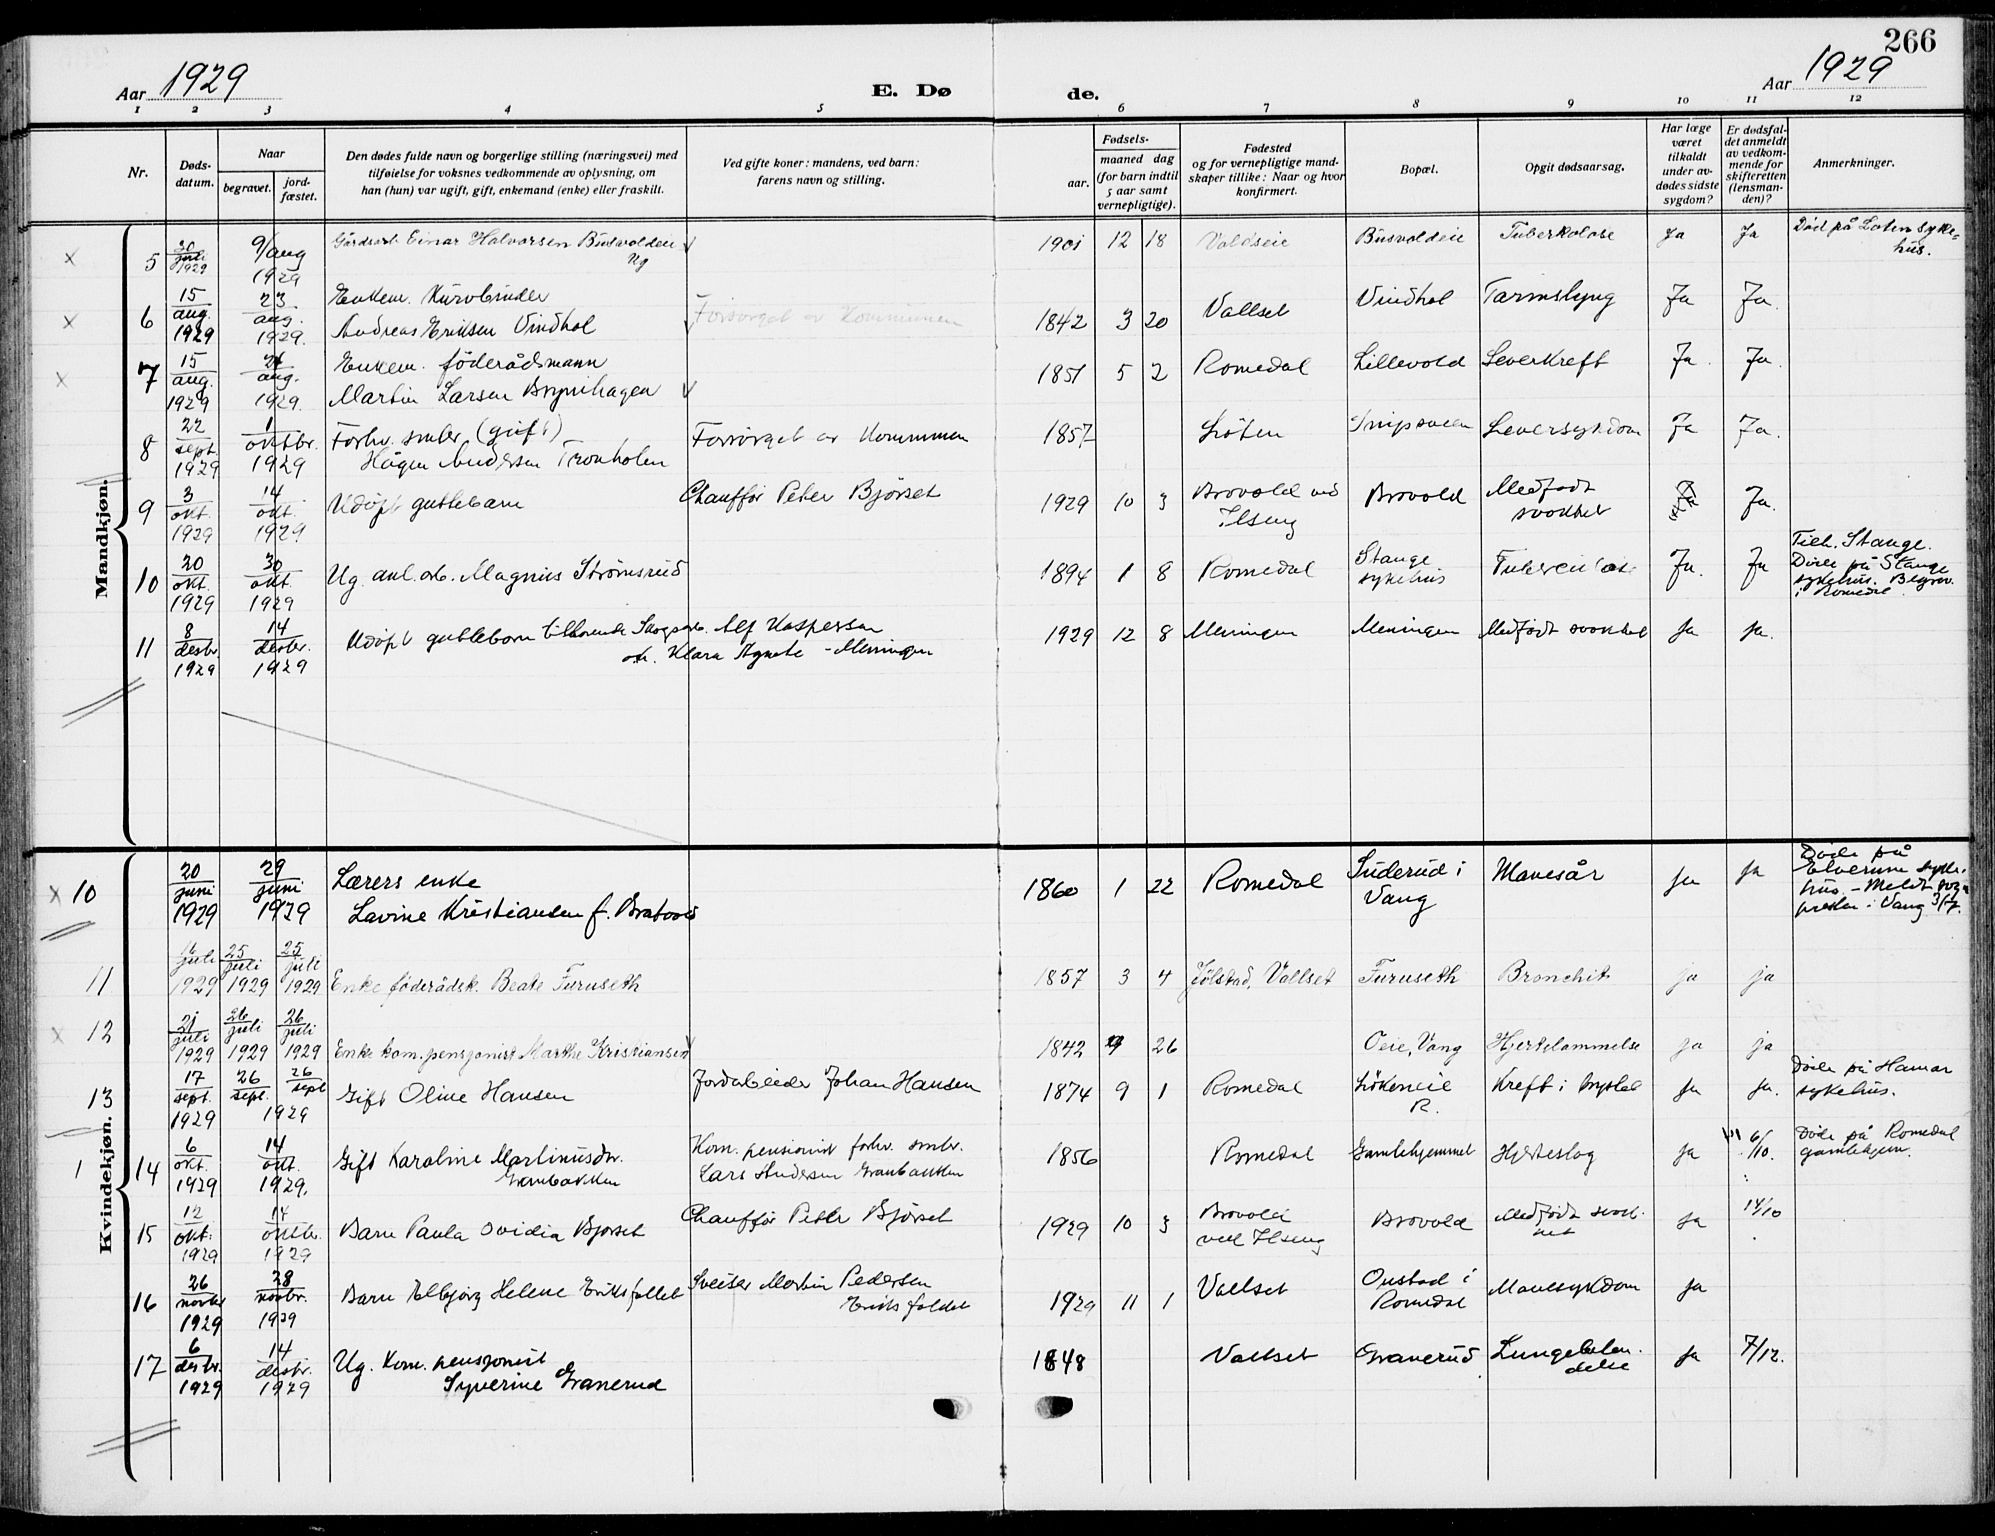 266
Aar 1929
E. Døde.
Aar 1929
1 2 3 4 5 6 7 8 9 10 11 12
Nr.
Døds-
datum.
Naar
begravet.
jord-
fæstet.
Den dødes fulde navn og borgerlige stilling (næringsvei) med
tilføielse for voksnes vedkommende av oplysning, om
han (hun) var ugift, gift, enkemand (enke) eller fraskilt.
Ved gifte koner: mandens, ved barn:
farens navn og stilling.
Fødsels-
aar.
maaned dag
(for barn indtil
5 aar samt
vernepligtige).
Fødested
og for vernepligtige mand-
skaper tillike: Naar og hvor
konfirmert.
Bopæl.
Opgit dødsaarsag.
Har læge
været
tilkaldt
under av-
dødes sidste
sygdom?
Er dødsfal-
det anmeldt
av vedkom-
mende for
skifteretten
(lensman-
den)?
Anmerkninger.
Mandkjøn.
5 30 juli 1929 9/aug 1929 Gårdsarb. Einar Halvorsen Busvoldeie Ug 1901 12 18 Busvoldeie Tuberkolose Ja Ja Død på Løten syke-
hus.
6 15 aug. 1929 23 aug. 1929. Enkem. Kurvbinder
Andreas Eriksen Vindhol Forsørget av Kommunen 1842 3 20 Vallset Vindhol Tarmslyng Ja Ja.
7 15 aug. 1929 21 aug. 1929. Enkem. föderådsmann
Martin Larsen Brynhagen 1851 5 2 Romedal Lillevold Leverkreft Ja. Ja.
8 22 sept. 1929 1 oktbr. 1929 Forhv. smbr. (gift)
Hågen Andersen Tronholen Forsörget av Kommunen 1857 Löten Leversykdom Ja Ja.
9 3 okt. 1929 14 okt. 1929 Udöpt guttebarn Chaufför Peter Björset 1929 10 3 Brovold ved
Ilseng Brovold Medfödt
svakhet Ja.
10 20 okt. 1929 30 okt. 1929 Ug. anl.arb. Magnus Strömsrud 1894 1 8 Romedal Stange
sykehus Ja. Ja Tilh. Stange.
Döde på Stange
sykehus. Begrav.
i Romedal.
11 8 desbr. 1929 14 desbr. 1929 Udöpt guttebarn tilhörende Skogsarb. Alf Kaspersen
o.h. Klara Agnete - Meningen 1929 12 8 Meningen Meningen Medfödt svakhet Ja Ja.
Kvindekjøn.
10 20 juni 1929 29 juni 1929 Lærers enke
Lavine Kristiansen f. 1860 1 22 Romedal i
Vang Mavesår Ja Ja Döde på
Elverum syke-
hus. - Meldt sogn
presten i Vang 3/7.
11 16 juli 1929 25 juli 1929 25 juli 1929 Enke föderådsk. Beate Furuseth 1857 3 4 Jölstad, Vallset Furuseth Bronchit ja ja
12 21 juli 1929 26 juli 1929 26 juli 1929 Enke kom. pensjonist Marthe Kristiansen 1842 9 26 Oeie, Vang Hjertelammelse ja ja
13 17 sept. 1929 26 sept. 26 sept 1929 Gift Oline Hansen Jordarbeider Johan Hansen 1874 9 1 Romedal Lökeneie
R. Kreft i brystet Ja Ja. Döde på Hamar
sykehus.
1 14 6 okt. 1929 14 okt. 1929. Gift Karoline Martinusdr.
Granbakken Kom. pensionist forhv. smbr.
Lars Andersen Granbakken 1856 Romedal Gamlehjemmet Hjerteslag Ja 6/10. Döde på Romedal
gamlehjem.
15 12 okt. 1929 14 oktbr. 1929 Barn Paula Ovidia Björset Chaufför Peter Björset 1929 10 3 Brovold
ved Ilseng Brovold Medfödt svak-
het Ja 14/10
16 26 novbr 1929 28 novbr. 1929 Barn Elbjörg Helene Eriksfallet Sveiser Martin Pedersen
Eriksfaldet 1929 11 1 Vallset Oustad i
Romedal Mavesykdom Ja
17 6 desbr. 1929 14 desbr. 1929 Ug. Kom. pensjonist
Syverine Granerud 1848 Vallset Granerud Lungebeten-
delse Ja 7/12.